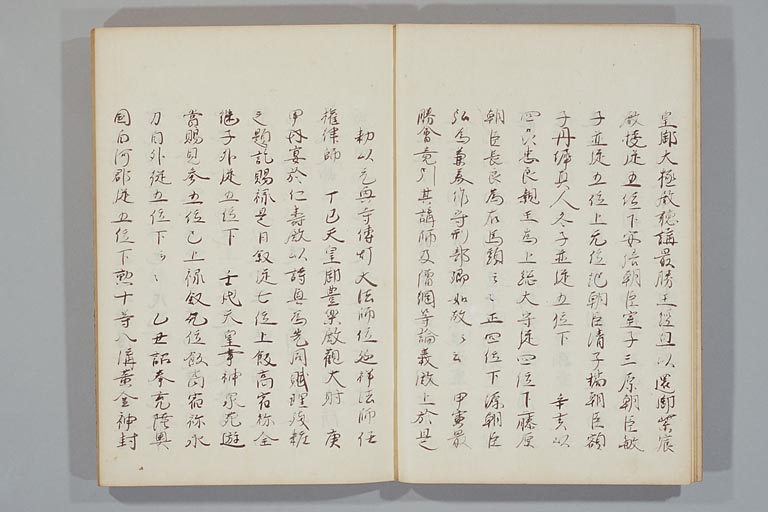 皇御大極殿聴講最勝王経日以還御紫宸
殿授従五位下安倍朝臣室子三原朝臣敏
子並従五位上无位紀朝臣清子橘朝臣額
子丹墀真人冬子並従五位下　辛亥以
四品忠良親王為上総大守従四位下藤原
朝臣長良為右馬頭云々正四位下源朝臣
弘為兼美作守刑部卿如故云々　甲寅最
勝会竟引其講師及僧綱等論義殿上於是
勅以元興寺傳灯大法師位延祥法師任
権律師　丁巳天皇御豊楽殿観大射　庚
申内宴於仁壽殿以詩興為先同賦理殘粧
之題訖賜祿是日叙従七位上飯高宿祢全
継子外従五位下　壬戌天皇幸神泉苑遊
賞賜見参五位已上禄叙无位飯高宿祢永
刀自外従五位下云々　乙丑詔奉充陸奥
国白河郡従五位下勲十等八溝黄金神封